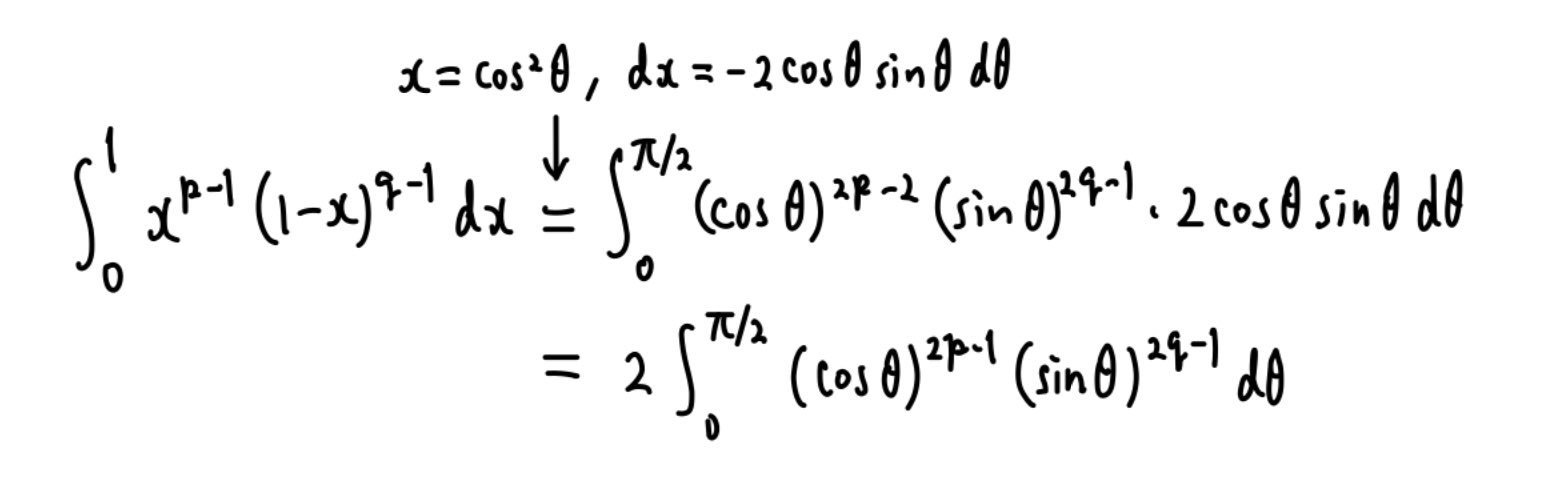 x = cos²θ, dx = -2 cosθ sinθ dθ
↓
∫₀¹ x^{p-1} (1-x)^{q-1} dx = ∫₀^{π/2} (cos θ)^{2p-2} (sin θ)^{2q-1} · 2 cosθ sinθ dθ
= 2 ∫₀^{π/2} (cos θ)^{2p-1} (sin θ)^{2q-1} dθ